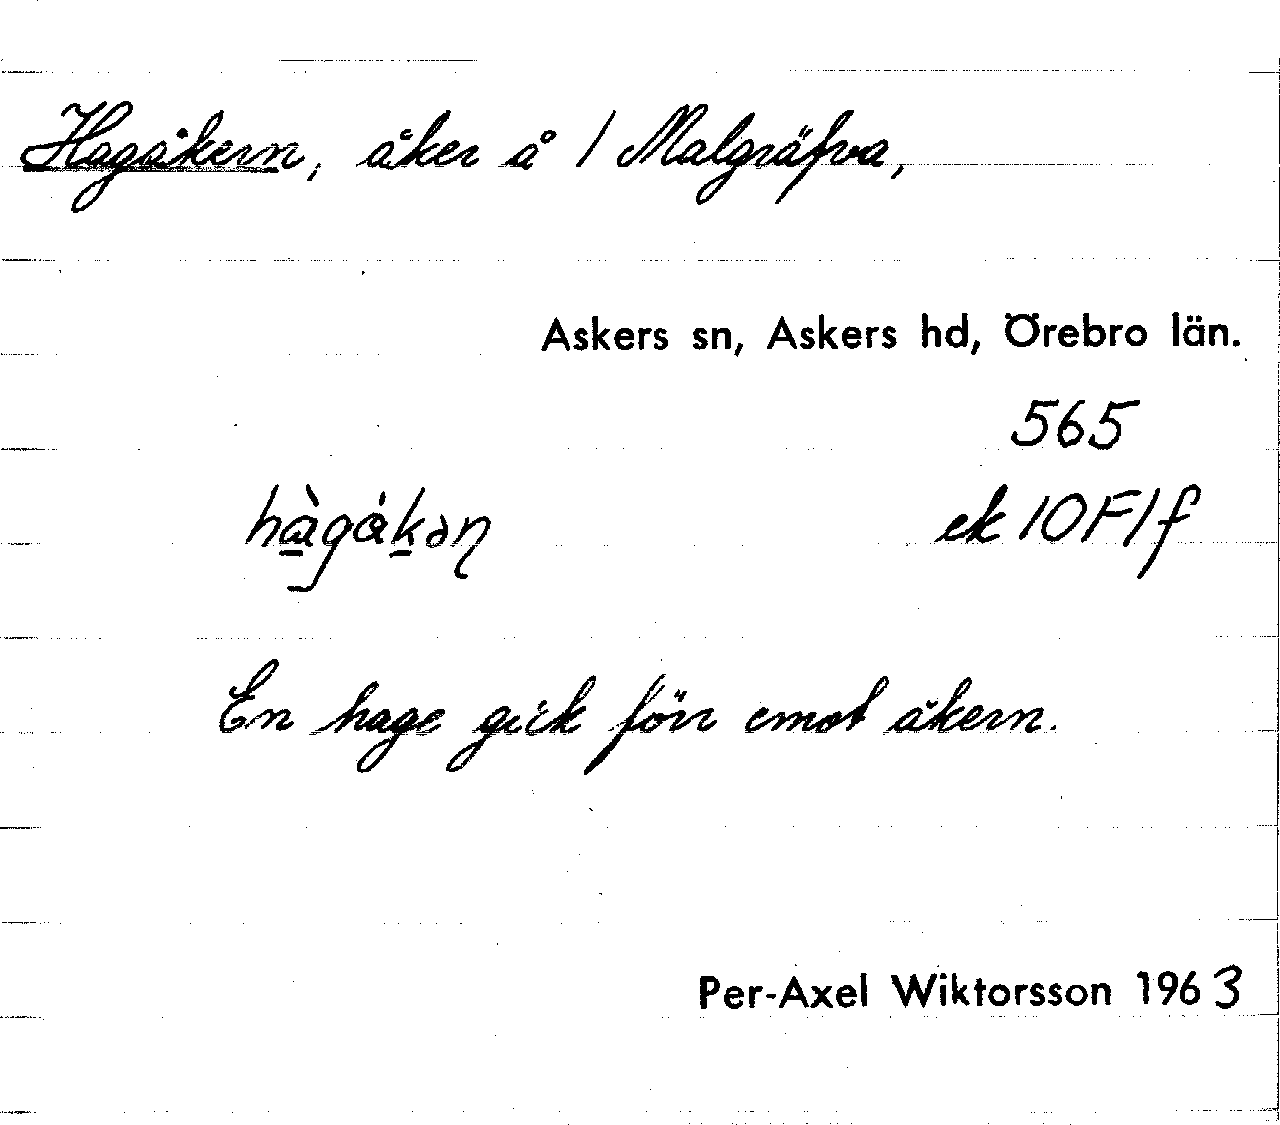 Hagåkern, åker å 1 Malgräfva,
Askers sn, Askers hd, Örebro län.
565
hàgåkən ek 10F1f
En hage gick förr emot åkern.
Per-Axel Wiktorsson 1963